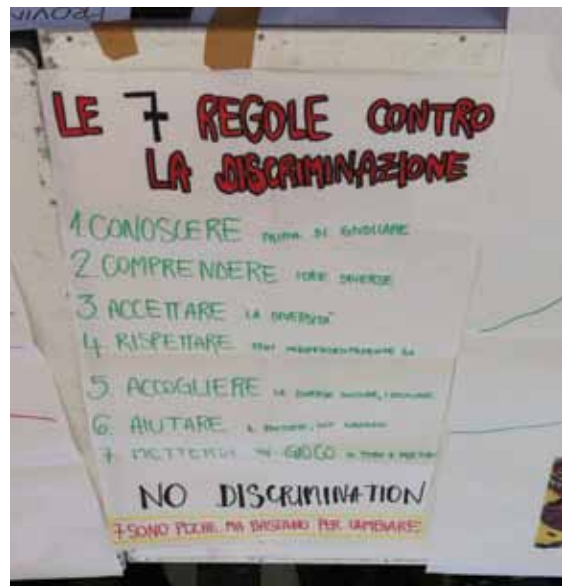 LE 7 REGOLE CONTRO
LA DISCRIMINAZIONE
1. CONOSCERE PRIMA DI GIUDICARE
2 COMPRENDERE IDEE DIVERSE
3. ACCETTARE LA DIVERSITÀ
4. RISPETTARE INDIPENDENTEMENTE DA
5. ACCOGLIERE LE DIVERSE
6. AIUTARE IL
7 METTERSI IN GIOCO
NO DISCRIMINATION
7 SONO POCHE MA BASTANO PER CAMBIARE